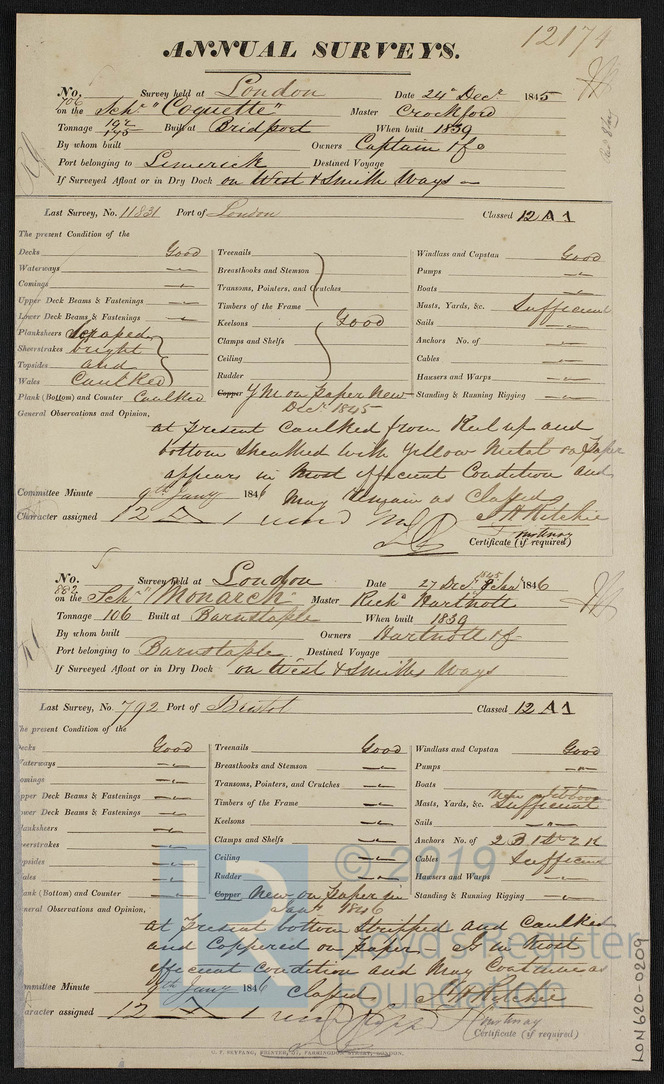 12174
ANNUAL SURVEYS.
No. 706 Survey held at London Date 24th Decr 1845
on the Schr "Coquette" Master Crockford
Tonnage 192/175 Built at Bridport When built 1839
By whom built Owners Captain & Co
Port belonging to Limerick Destined Voyage
If Surveyed Afloat or in Dry Dock on West & Smiths Ways
Last Survey, No. 11831 Port of London Classed 12 A 1
The present Condition of the
Decks Good Treenails Windlass and Capstan Good
Waterways " Breasthooks and Stemson Pumps "
Comings " Transoms, Pointers, and Crutches Boats "
Upper Deck Beams & Fastenings " Timbers of the Frame Masts, Yards, &c. Sufficient
Lower Deck Beams & Fastenings " Keelsons Good Sails "
Planksheers Scraped Clamps and Shelfs Anchors No. of "
Sheerstrakes bright Ceiling Cables "
Topsides and Rudder Hawsers and Warps "
Wales Caulked Copper Y M on Paper New Standing & Running Rigging "
Plank (Bottom) and Counter Caulked Decr 1845
General Observations and Opinion,
at Present Caulked from Keel up and
bottom Sheathed with Yellow Metal on Paper
appears in Most efficient Condition and
Committee Minute 9th Jany 1846 May Remain as Classed
Character assigned 12 A 1 J H Ritchie
Certificate (if required)
No. 882 Survey held at London Date 27 Decr 1845 8 Jany 1846
on the Schr "Monarch" Master Richd Hartnoll
Tonnage 106 Built at Barnstaple When built 1839
By whom built Owners Hartnoll & Co
Port belonging to Barnstaple Destined Voyage
If Surveyed Afloat or in Dry Dock on West & Smiths Ways
Last Survey, No. 792 Port of Bristol Classed 12 A 1
The present Condition of the
Decks Good Treenails Good Windlass and Capstan Good
Waterways " Breasthooks and Stemson " Pumps "
Comings " Transoms, Pointers, and Crutches " Boats
Upper Deck Beams & Fastenings " Timbers of the Frame " Masts, Yards, &c. Sufficient
Lower Deck Beams & Fastenings " Keelsons " Sails "
Planksheers " Clamps and Shelfs " Anchors No. of 2 B 1 St 2 K
Sheerstrakes " Ceiling " Cables Sufficient
Topsides " Rudder " Hawsers and Warps "
Wales " Copper New on Paper in Standing & Running Rigging "
Plank (Bottom) and Counter " Jany 1846
General Observations and Opinion,
at Present bottom Stripped and Caulked
and Coppered on Paper Is in Most
efficient Condition and May Continue as
Committee Minute 9th Jany 1846 Classed J H Ritchie
Character assigned 12 A 1
Certificate (if required)
G. F. SEYFANG, PRINTER, 57, FARRINGDON STREET, LONDON.
LON620-0209
LR © 2019
Lloyd's Register
Foundation